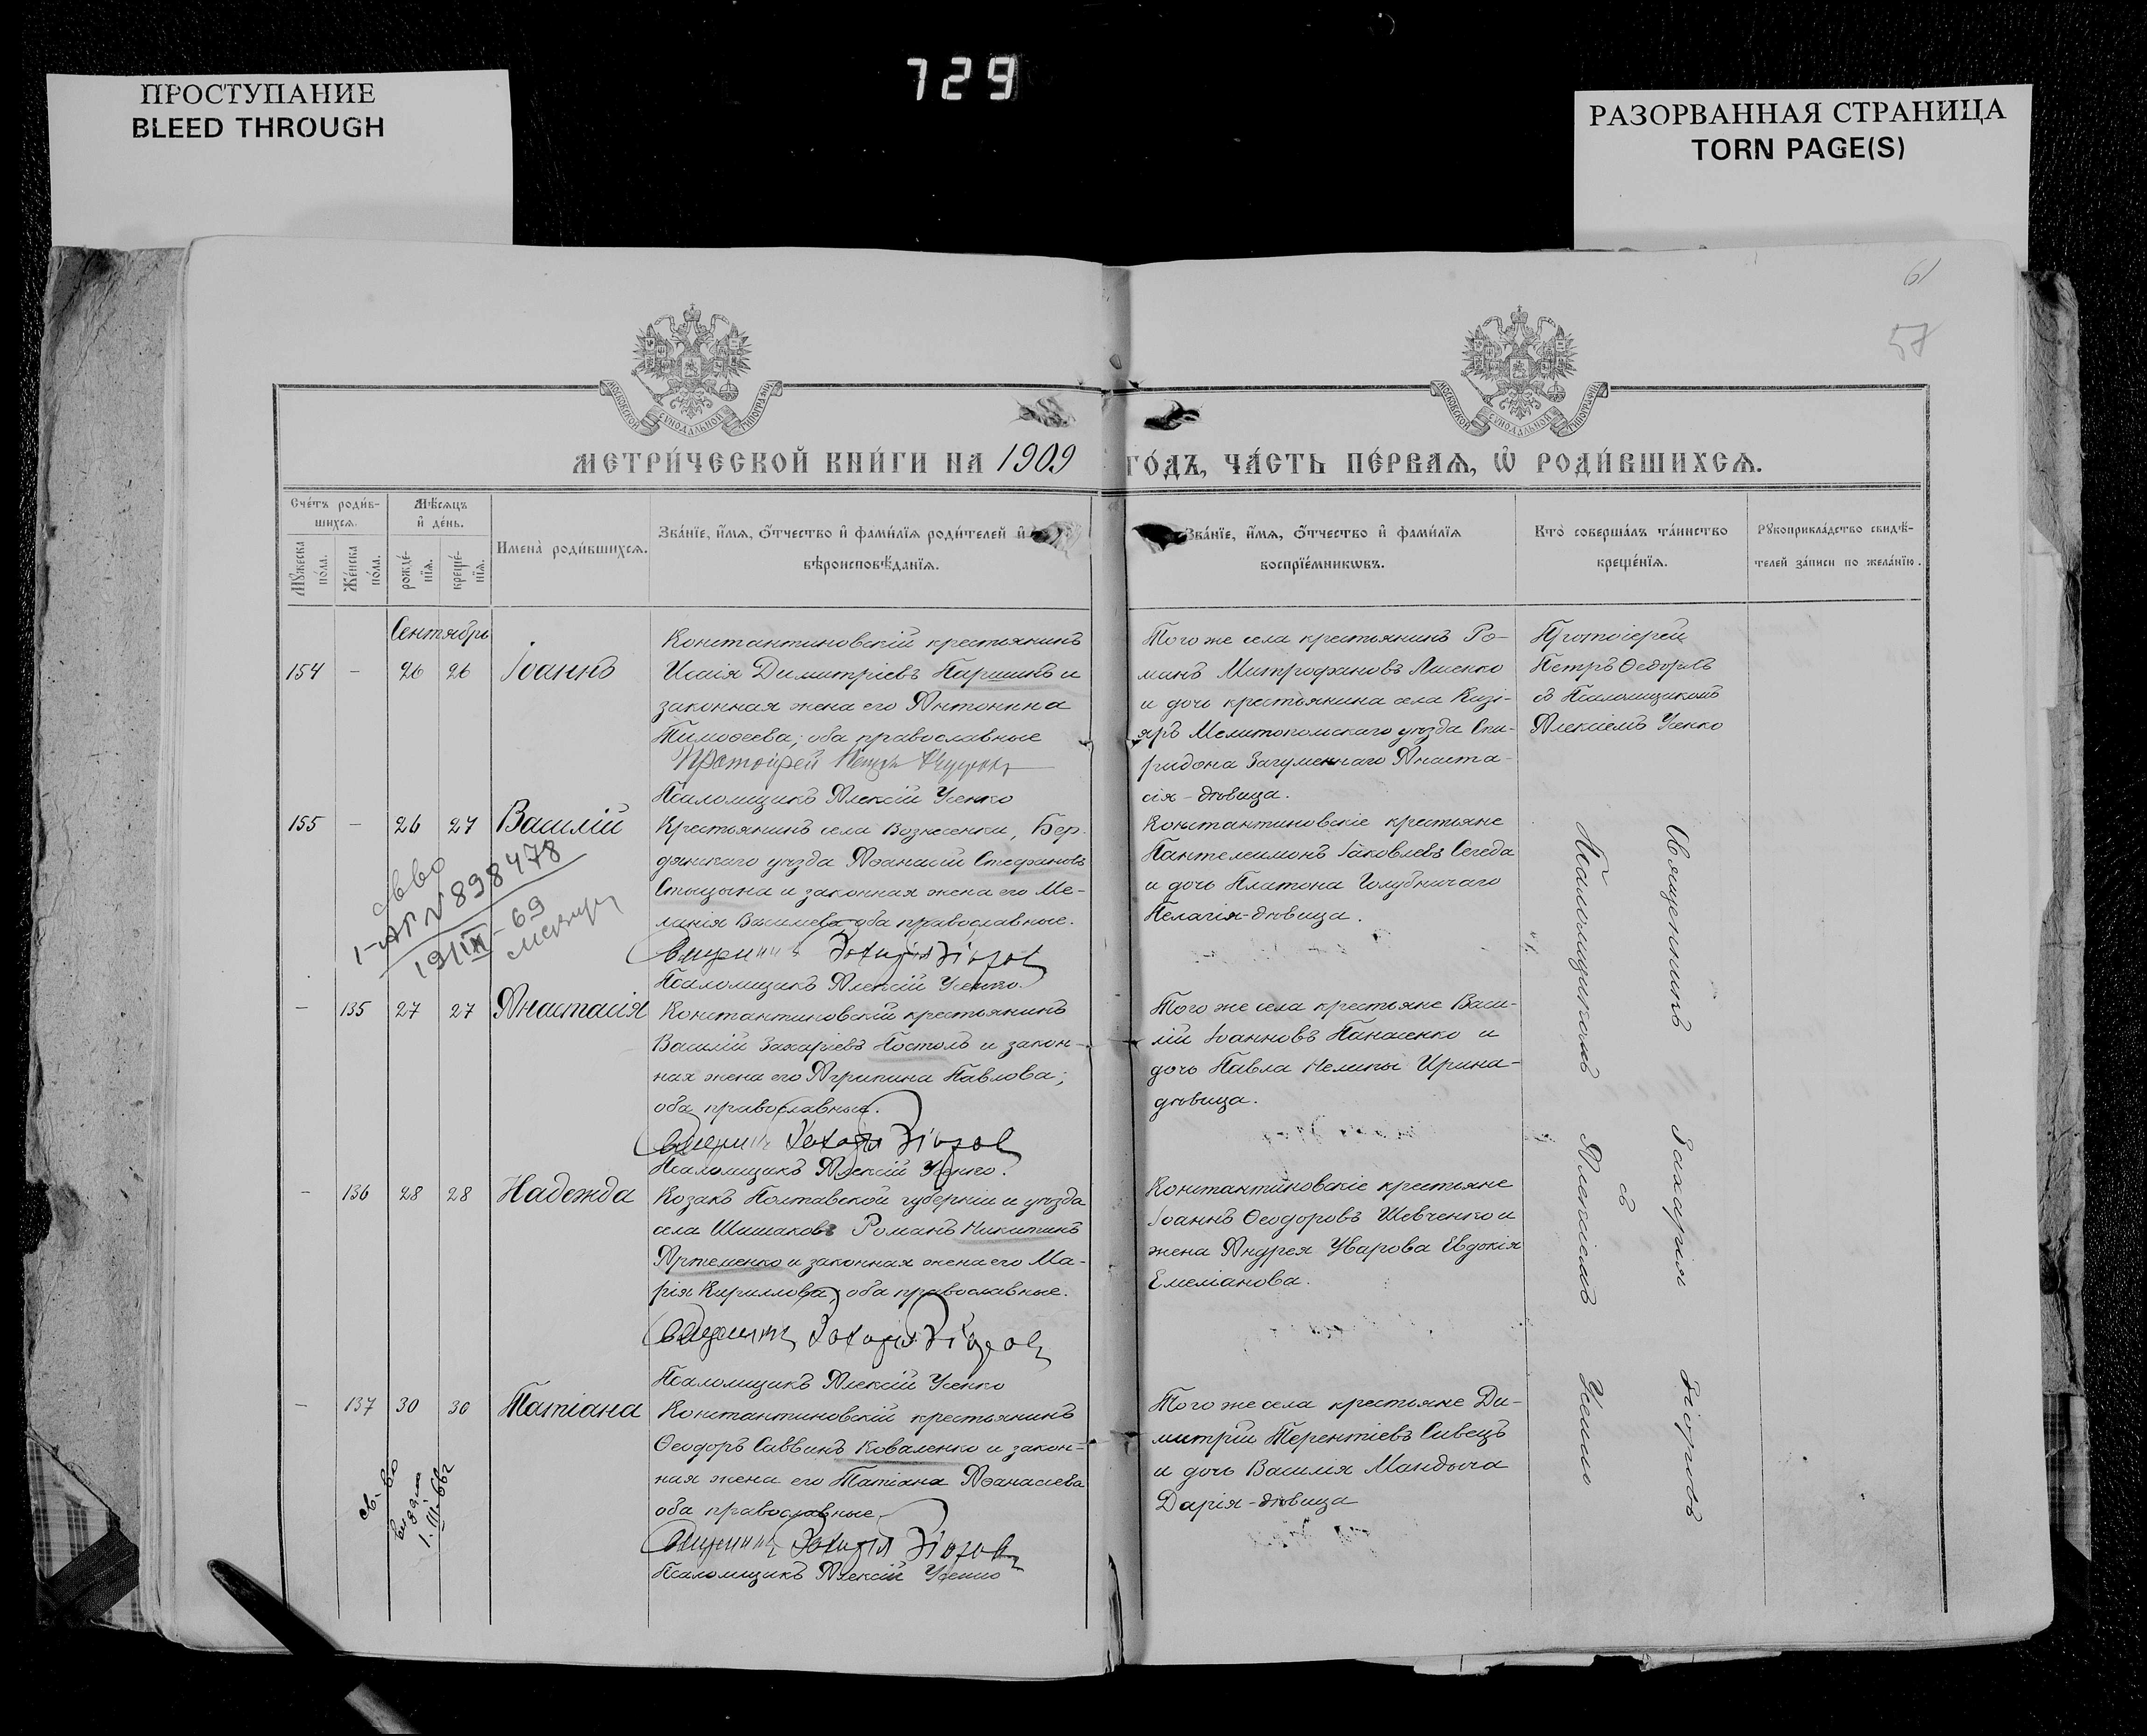 729
ПРОСТУПАНИЕ
BLEED THROUGH
РАЗОРВАННАЯ СТРАНИЦА
TORN PAGE(S)
61
57
МОСКОВСКОЙ СѴНОДАЛЬНОЙ ТИПОГРАФІИ
МОСКОВСКОЙ СѴНОДАЛЬНОЙ ТИПОГРАФІИ
МЕТРИ́ЧЕСКОЙ КНИ́ГИ НА 1909 ГО́ДЪ, ЧА́СТЬ ПЕ́РВАѦ, Ѽ РОДИ́ВШИХСѦ.
Сче́тъ роди́в-
шихсѧ.
Мѣ́сѧцъ
и҆ де́нь.
Мꙋ́жеска
по́ла.
Же́нска
по́ла.
рожде́-
нїѧ.
креще́-
нїѧ.
Имена̀ роди́вшихсѧ.
Зва́нїе, и҆́мѧ, ѻ҆́тчество и҆ фами́лїѧ роди́телей и҆
вѣроисповѣ́данїѧ.
Зва́нїе, и҆́мѧ, ѻ҆́тчество и҆ фами́лїѧ
воспрїе́мникѡвъ.
Кто̀ соверша́лъ та́инство
креще́нїѧ.
Рꙋкоприкла́дство свидѣ́-
телей за́писи по жела́нїю.
Сентябрь
154 – 26 26 Іоаннъ
Константиновскій крестьянинъ
Исаія Димитріевъ Паршинъ и
законная жена его Антонина
Тимоѳеева, оба православные
Протоіерей Петръ
Псаломщикъ Алексій Усенко
Того же села крестьянинъ Ро-
манъ Митрофановъ Лисенко
и дочь крестьянина села Кизі-
яръ Мелитопольскаго уѣзда Спи-
ридона Загуменнаго Анаста-
сія - дѣвица.
Протоіерей
Петръ
съ Псаломщикомъ
Алексіемъ Усенко
155 – 26 27 Василій
Крестьянинъ села Вознесенки, Бер-
дянскаго уѣзда Аѳанасій Стефановъ
Спицына и законная жена его Ме-
ланія Василева, оба православные.
Священникъ Захарія
Псаломщикъ Алексій Усенко.
Константиновскіе крестьяне
Пантелеимонъ Іаковлевъ Сегеда
и дочь Платона Голубничаго
Пелагія - дѣвица.
св-во
I-АП № 898478
19/IX - 69
– 135 27 27 Анастасія
Константиновскій крестьянинъ
Василій Захаріевъ Постолъ и закон-
ная жена его Агрипина Павлова;
оба православные.
Священникъ Захарія
Псаломщикъ Алексій Усенко.
Того же села крестьяне Васи-
лій Іоанновъ Панасенко и
дочь Павла Нелипы Ирина-
дѣвица.
– 136 28 28 Надежда
Козакъ Полтавской губерніи и уѣзда
села Шишаковъ Романъ Никитинъ
Артеменко и законная жена его Ма-
рія Кириллова, оба православные.
Священникъ Захарія
Псаломщикъ Алексій Усенко
Константиновскіе крестьяне
Іоаннъ Ѳеодоровъ Шевченко и
жена Андрея Уварова Евдокія
Емеліанова.
– 137 30 30 Татіана
Константиновскій крестьянинъ
Ѳеодоръ Саввинъ Коваленко и закон-
ная жена его Татіана Аѳанасіева
оба православные.
Священникъ Захарія
Псаломщикъ Алексій Усенко
Того же села крестьяне Ди-
митрій Терентіевъ Сивецъ
и дочь Василія Мандыча
Дарія - дѣвица
св-во
выдано
1.III-66г
Священникъ Захарія
съ
Псаломщикомъ Алексіемъ Усенко